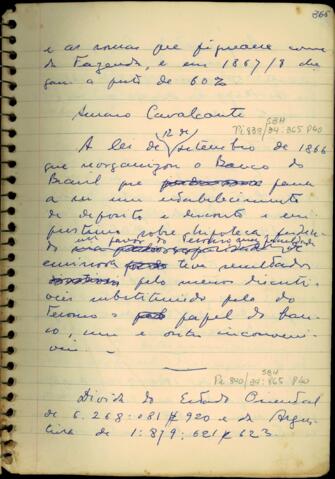 365
e as somas que figuram como
da Fazenda, e em 1867/8 che
gam a perto de 60%
Amaro Cavalcanti
SBH
Pi 839/34:365 P40
A lei de 12 de setembro de 1866
que reorganizou o Banco do
Brasil que passa
a ser um estabelecimento
de deposito e desconto e em
prestimo sobre hipoteca, perdendo
em favor do Tesouro
emissora teve resultados
pelo menos discuti
veis substituindo pelo do
Tesouro o papel do ban
co, um e outro inconversi
veis.
SBH
Pi 840/34:365 P40
Divida do Estado Oriental
de 6.268:081$920 e da Argen
tina de 1:879:621$623.